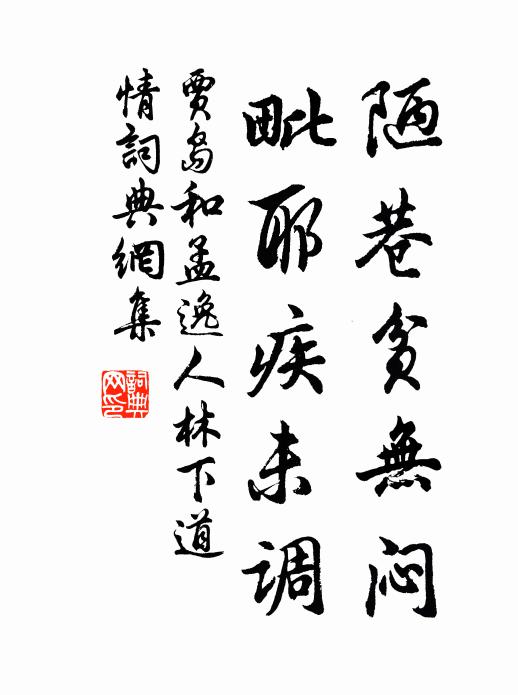 陋巷貧無悶
毗耶疾未調
賈島和孟逸人林下道
情詞典網集
詞典
网印